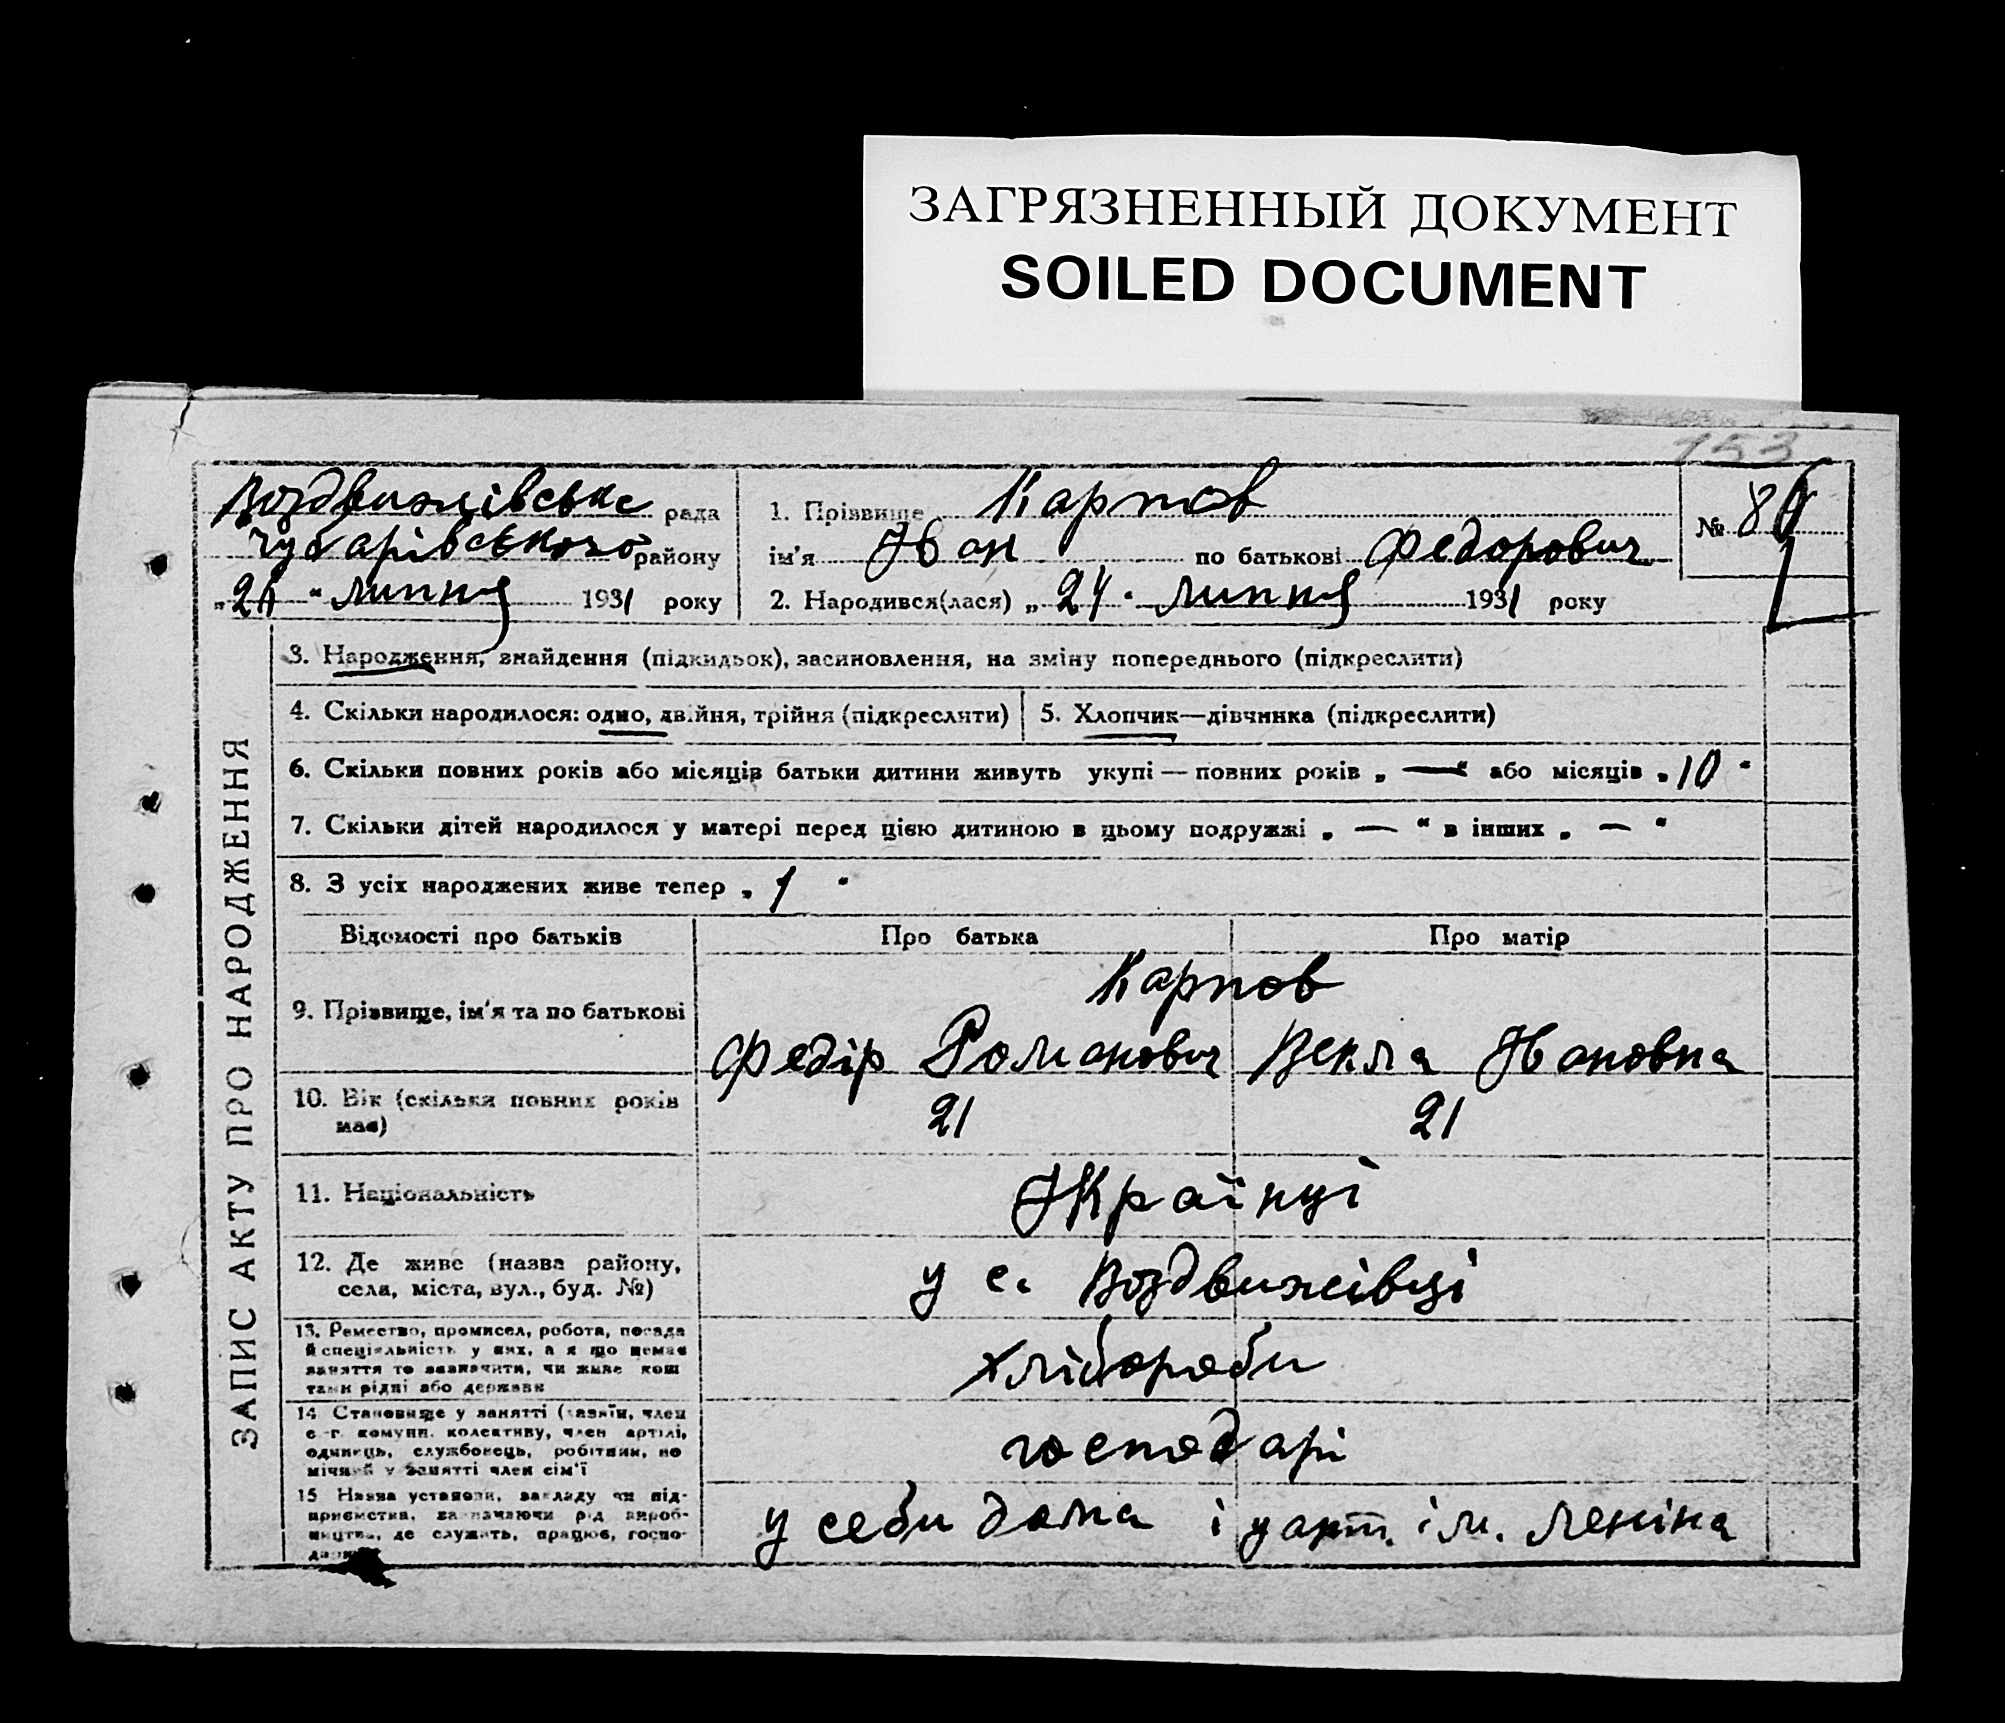 ЗАГРЯЗНЕННЫЙ ДОКУМЕНТ
SOILED DOCUMENT
153
Воздвижівська рада
Чубарівського району
„ “ липня 1931 року
1. Прізвище Карпов
ім'я Іван по батькові Федорович
№ 8
2. Народився(лася) „24“ липня 1931 року
ЗАПИС АКТУ ПРО НАРОДЖЕННЯ
3. Народження, знайдення (підкидьок), засиновлення, на зміну попереднього (підкреслити)
4. Скільки народилося: одно, двійня, трійня (підкреслити)
5. Хлопчик—дівчинка (підкреслити)
6. Скільки повних років або місяців батьки дитини живуть укупі — повних років „—“ або місяців „10“
7. Скільки дітей народилося у матері перед цією дитиною в цьому подружжі „—“ в інших „—“
8. З усіх народжених живе тепер „1“
Відомості про батьків Про батька Про матір
9. Прізвище, ім'я та по батькові
Карпов
Федір Романович Векла Івановна
10. Вік (скільки повних років
має)
21 21
11. Національність
Українці
12. Де живе (назва району,
села, міста, вул., буд. №)
у с. Воздвижівці
13. Ремество, промисел, робота, посада
й спеціяльність у них, а я що немає
заняття то зазначити, чи живе кош
тами рідні або держави
хлібороби
14 Становище у занятті (хазяїн, член
с.-г. комуни, колективу, член артілі,
одинець, службовець, робітник, по
мічний у занятті член сім'ї
господарі
15 Назва установи, закладу чи під-
приємства, зазначаючи рід вироб-
ництва, де служить, працює, госпо-
у себи дома і у арт. ім. Леніна